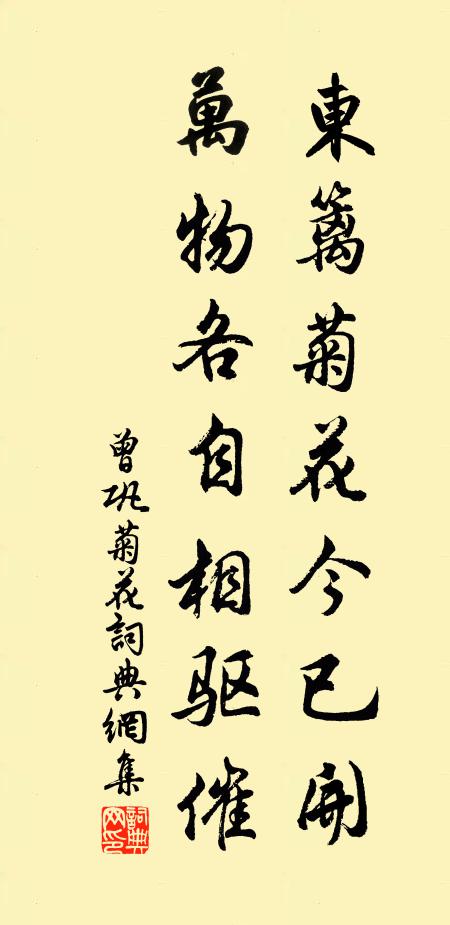 東篱菊花今已開
萬物各自相驱催
曾巩菊花詞典網集
詞典网印